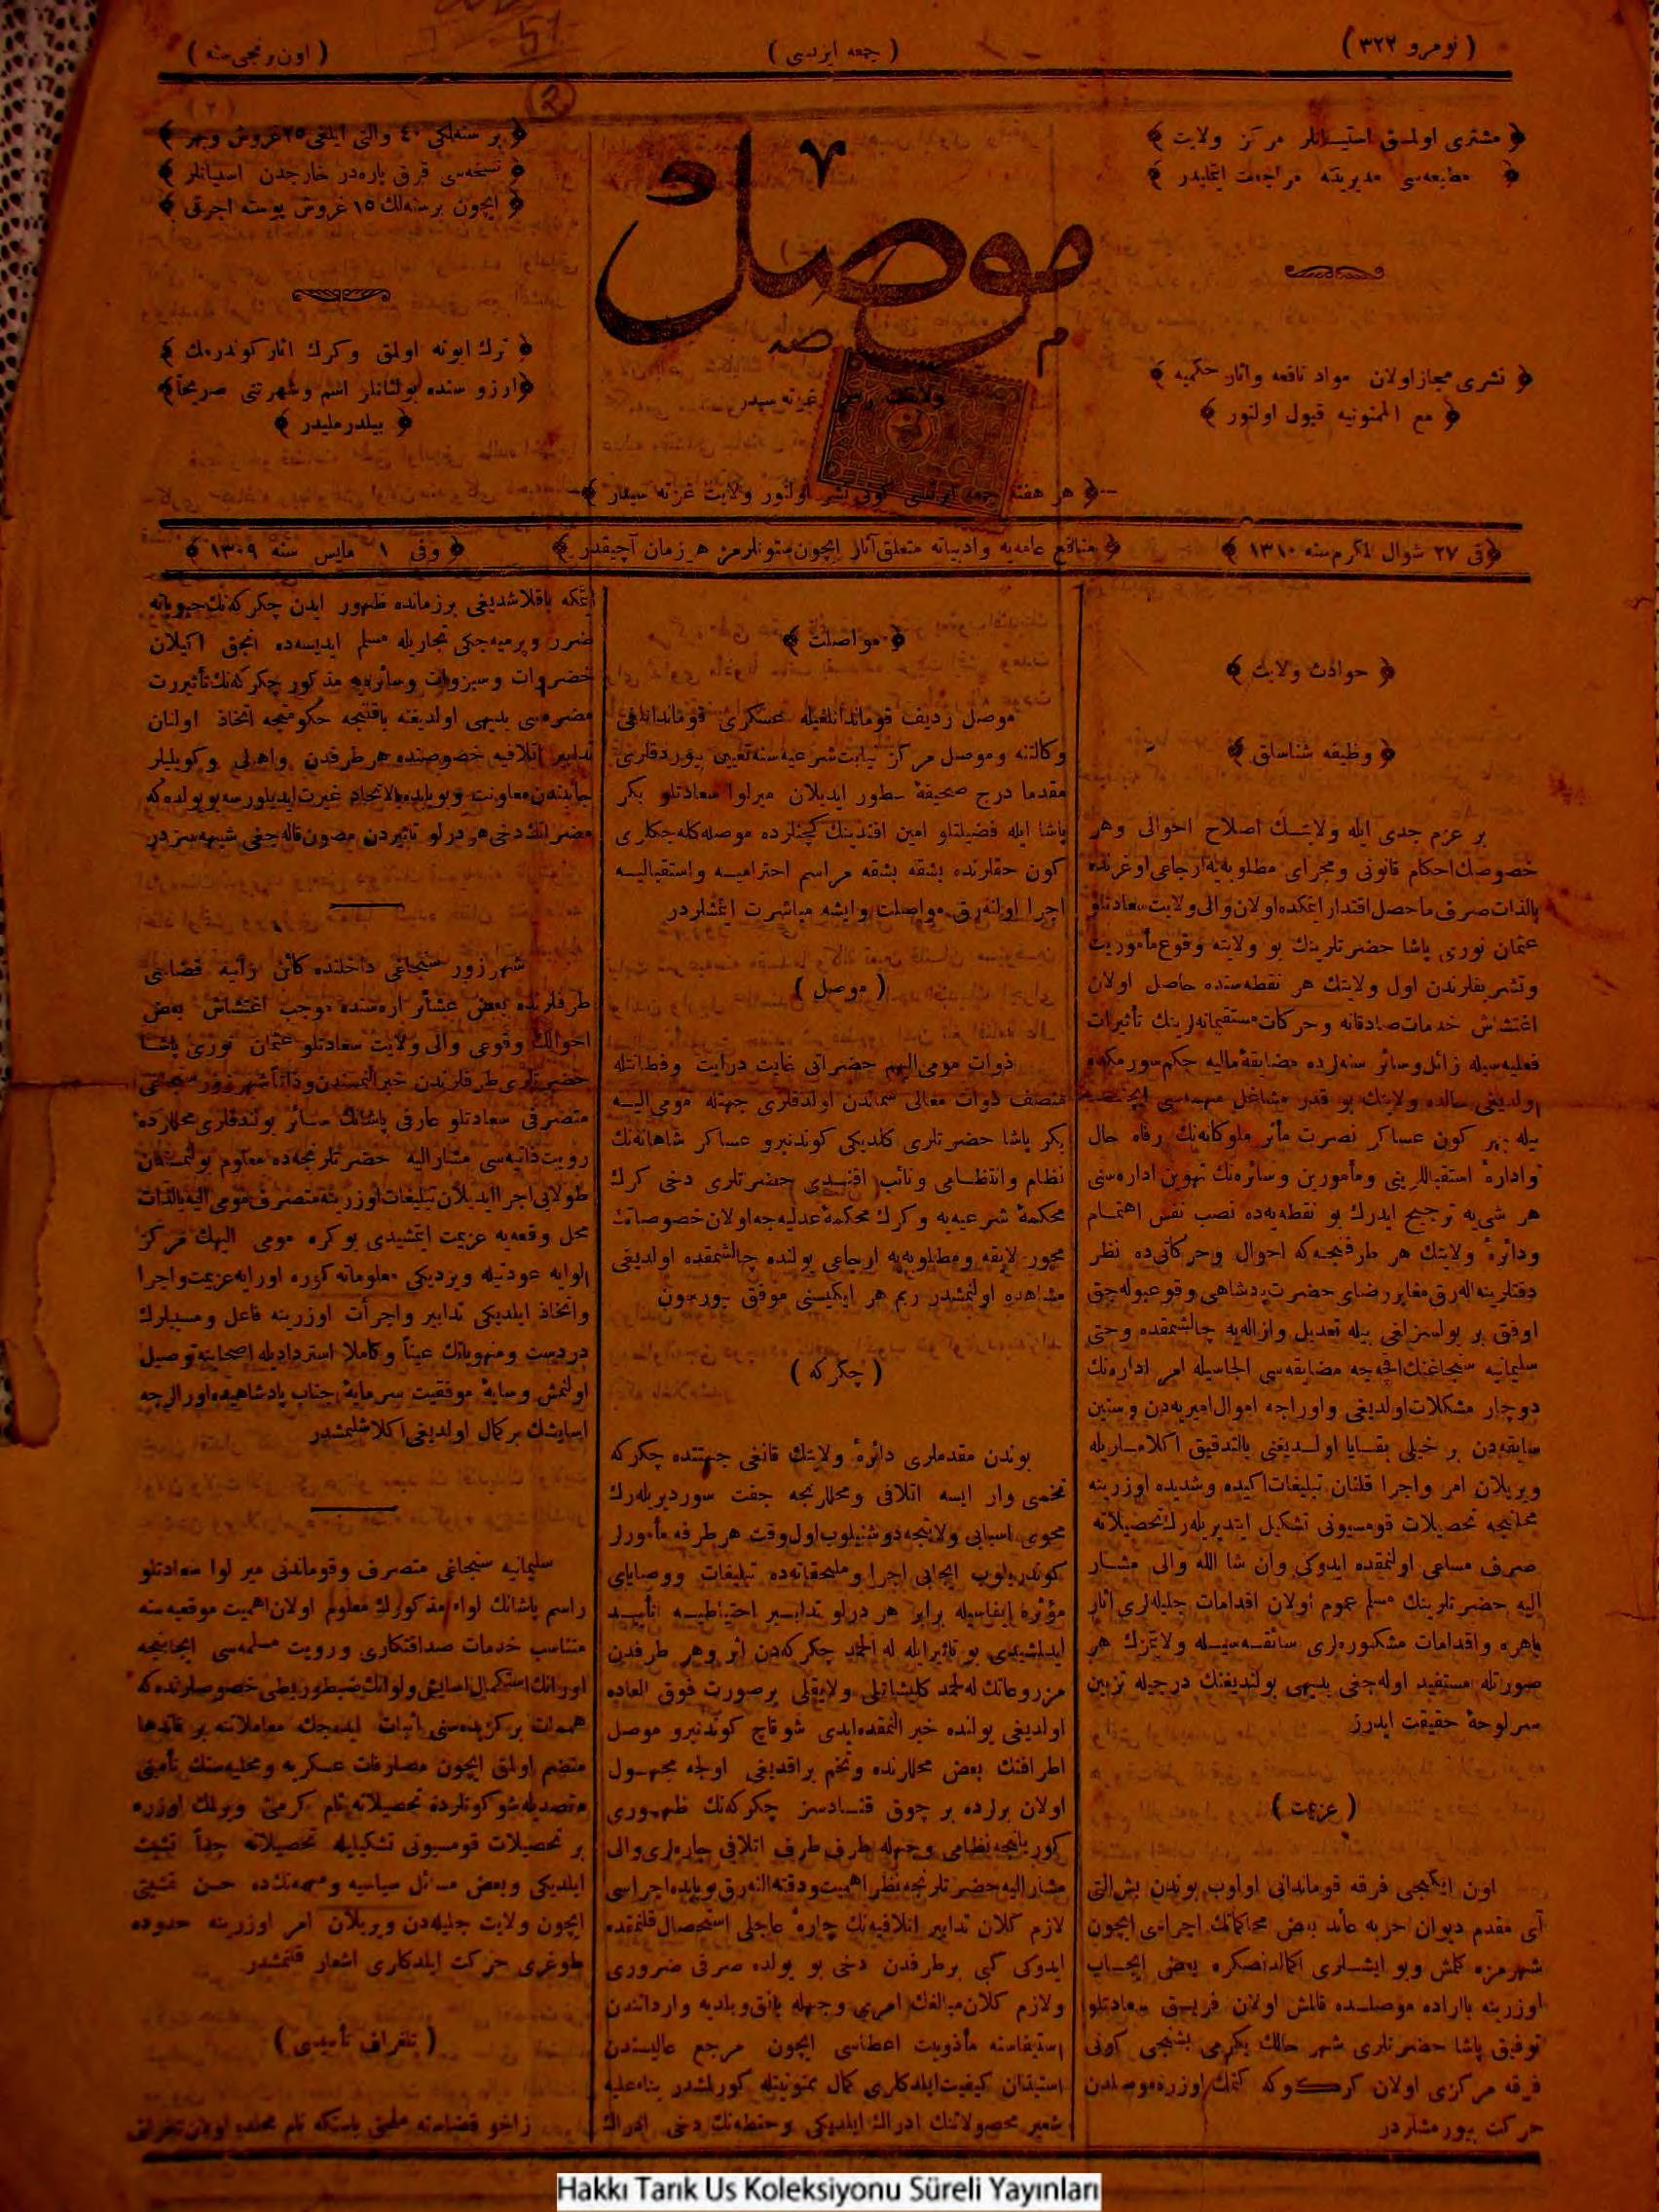 ( نومرو ٣٢٢ )
( جمعه ايرتسى )
( اون برنجى سنه )
مشترى اولمق استيانلر مركز ولايت
مطبعه‌سى مديريتنه مراجعت ايتمليدر
نشرى مجاز اولان مواد نافعه و آثار حكميه
مع الممنونيه قبول اولنور
موصل
ولايتك رسمى غزته سيدر
هر هفته جمعه ايرتسى كونى نشر اولنور ولايت غزته سيدر
بر سنه‌لكى ٤٠ والتى ايلغى ٢٥ غروش وبهر
نسخه‌سى قرق پاره‌در خارجدن استيانلر
ايچون بر سنه‌لك ١٥ غروش پوسته اجرتى
ترك ابونه اولمق وكرك اثار كوندرمك
ارزو سنده بولنانلر اسم وشهرتنى صريحاً
بيلدرمليدر
فى ٢٧ شوال المكرم سنه ١٣١٠
منافع عامه‌يه وادبياته متعلق آثار ايچون ستونلرمز هر زمان آچيقدر
وفى ١ مايس سنه ١٣٠٩
حوادث ولايت
وظيفه شناسلق
بر عزم جدى ايله ولايتك اصلاح احوالى وهر
خصوصك احكام قانونى ومجراى مطلوبه‌يه ارجاعى اوغرنده
بالذات صرف ماحصل اقتدار ايتمكده اولان والى ولايت سعادتلو
عثمان نورى پاشا حضرتلرينك بو ولايته وقوع مأموريت
وتشريفلرندن اول ولايتك هر نقطه‌سنده حاصل اولان
اغتشاش خدمات صادقانه وحركات مستقيمانه‌لرينك تأثيرات
فعليه‌سيله زائل وسائر سنه‌لرده مضايقهٔ ماليه حكم سورمكده
اولديغى حالده ولايتك بو قدر مشاغل مهمه‌سى ايچنده
بيله بهر كون عساكر نصرت مأثر ملوكانه‌نك رفاه حال
وادارهٔ استقباللرينى ومأمورين وسائره‌نك تهوين اداره‌سنى
هر شى‌يه ترجيح ايدرك بو نقطه‌يه‌ده نصب نفس اهتمام
ودائرهٔ ولايتك هر طرفنجه‌كه احوال وحركاتى‌ده نظر
دقتلرينه اله‌رق مغاير رضاى حضرت پادشاهى وقوعبوله‌جق
اوفق بر يولسزلغى بيله تعديل وازاله‌يه چالشمقده وحتى
سليمانيه سنجاغنك اقچه‌جه مضايقه‌سى الجاسيله امر اداره‌نك
دوچار مشكلات اولديغى واوراجه اموال اميريه‌دن وسنين
سابقه‌دن بر خيلى بقايا اولديغنى بالتدقيق اكلامه‌لريله
ويريلان امر واجرا قلنان تبليغات اكيده وشديده اوزرينه
محلنجه تحصيلات قومسيونى تشكيل ايتديريله‌رك تحصيلاته
صرف مساعى اولنمقده ايدوكى وان شا الله والى مشار
اليه حضرتلرينك مسلم عموم اولان اقدامات جليله‌لرى اثار
باهره واقدامات مشكوره‌لرى سائقه‌سيله ولايتمزك هر
صورتله مستفيد اوله‌جغى بديهى بولنديغنك درجيله تزيين
سرلوحهٔ حقيقت ايدرز
( عزيمت )
اون ايكنجى فرقه قوماندانى اولوب بوندن بش التى
آى مقدم ديوان حربه عائد بعض محاكماتك اجراسى ايچون
شهرمزه كلمش وبو ايشلرى اكمالدنصكره بعض ايجاب
اوزرينه بااراده موصلده قالمش اولان فريق سعادتلو
توفيق پاشا حضرتلرى شهر حالك يكرمى بشنجى كونى
فرقه مركزى اولان كركوكه كتمك اوزره موصلدن
حركت بيورمشلردر
مواصلت
موصل رديف قوماندانلغيله عسكرى قوماندانلغى
وكالتنه وموصل مركز نيابت شرعيه‌سنه تعيين بيوردقلرى
مقدما درج صحيفهٔ سطور ايديلان ميرلوا سعادتلو بكر
پاشا ايله فضيلتلو امين افندينك كچنلرده موصله كله‌جكلرى
كون حقلرنده بشقه بشقه مراسم احتراميه واستقباليه
اجرا اولنه‌رق مواصلت وايشه مباشرت ايتمشلردر
( موصل )
ذوات مومى اليهم حضراتى غايت درايت وفطانتله
متصف ذوات معالى سماتدن اولدقلرى جهتله مومى اليه
بكر پاشا حضرتلرى كلديكى كوندنبرو عساكر شاهانه‌نك
نظام وانتظامى ونائب افندى حضرتلرى دخى كرك
محكمهٔ شرعيه‌يه وكرك محكمهٔ عدليه‌جه اولان خصوصاتك
محور لايقه ومطلوبه‌يه ارجاعى يولنده چالشمقده اولديغى
مشاهده اولنمشدر ربم هر ايكيسنى موفق بيورسون
( چكركه )
بوندن مقدملرى دائرهٔ ولايتك قانغى جهتنده چكركه
تخمى وار ايسه اتلافى ومحللرنجه جفت سورديريله‌رك
محوى اسبابى ولايتجه دوشنيلوب اول وقت هر طرفه مأمورلر
كوندريلوب ايجابى اجرا وملحقاته‌ده تبليغات ووصاياى
مؤثره ايفاسيله برابر هر درلو تدابير احتياطيه تأييد
ايدلمشيدى بو تاثيرايله له الحمد چكركه‌دن اثر وهر طرفدن
مزروعاتك له الحمد كليشاتلى ولايقلى برصورت فوق العاده
اولديغى يولنده خبر النمقده‌ايدى شو قاچ كوندنبرو موصل
اطرافنك بعض محللرنده وتخم براقديغى اولجه مجهول
اولان يرلرده بر چوق قنادسز چكركه‌نك ظهورى
مشاراليه حضرتلرنجه نظر اهميت ودقته النه‌رق وبابده اجراسى
لازم كلان تدابير اتلافيه‌نك چارهٔ عاجلى استحصال قلنمقده
ايدوكى كبى برطرفدن دخى بو يولده صرفى ضرورى
ولازم كلان مبالغك امرى وجهله بانق وبلديه وارداتندن
استيفاسنه مأذونيت اعطاسى ايچون مرجع عاليسندن
استيذان كيفيت ايلدكلرى كمال ممنونيتله كورلمشدر بناءعليه
شعير محصولاتنك ادراك ايلديكى وحنطه‌نك دخى ادراك
ايتمكه ياقلاشديغى بر زمانده ظهور ايدن چكركه‌نك حبوباته
ضرر ويرميه‌جكى تجاربله مسلم ايديسه‌ده انجق اكيلان
خضروات وسبزوات وسائره‌يه مذكور چكركه‌نك تأثيرت
مضره‌سى بديهى اولديغنه باقنجه حكومتجه اتخاذ اولنان
تدابير اتلافيه خصوصنده هر طرفدن واهالى وكويليلر
جانبندن معاونت وبوبابده بالاتحاد غيرت ايديلورسه بو يولده‌كه
مضراتك دخى هر درلو تاثيردن مصون قاله‌جغى شبهه‌سزدر
شهرزور سنجاغى داخلنده كائن رانيه قضاسى
طرفلرنده بعض عشائر اره‌سنده موجب اغتشاش بعض
احوالك وقوعى والى ولايت سعادتلو عثمان نورى پاشا
حضرتلرى طرفلرندن خبر النمسندن وذاتاً شهرزور سنجاغى
متصرفى سعادتلو عارفى پاشانك سائر بولندقلرى محللرده
رويت ذاتيه‌سى مشاراليه حضرتلرنجه‌ده معلوم بولنمسندن
طولايى اجرا ايديلان تبليغات اوزرينه متصرف مومى اليه بالذات
محل وقعه‌يه عزيمت ايتمشيدى بوكره مومى اليهك مركز
لوايه عودتيله ويرديكى معلوماته كوره اورايه عزيمت واجرا
واتخاذ ايلديكى تدابير واجرأت اوزرينه فاعل ومسببلرك
دردست ومنهوباتك عيناً وكاملا استرداديله اصحابنه توصيل
اولنمش وسايهٔ موفقيت سرمايهٔ جناب پادشاهيده اورالرجه
اسايشك بركمال اولديغى اكلاشلمشدر
سليمانيه سنجاغى متصرف وقوماندانى مير لوا سعادتلو
راسم پاشانك لواء مذكورك معلوم اولان اهميت موقعيه‌سنه
متناسب خدمات صداقتكارى ورويت مسلمه‌سى ايجابنجه
اورانك استكمال اسايش ولوانك ضبط وربطى خصوصلرنده‌كه
متضم اولمق ايچون مصارفات عسكريه ومحليه‌سنك تأمينى
مقصديله شو كونلرده تحصيلاته تام كرمى ويرلمك اوزره
بر تحصيلات قومسيونى تشكيليله تحصيلاته جداً تشبث
ايلديكى وبعض مسائل سياسيه ومهمه‌نك‌ده حسن تمشيتى
ايچون ولايت جليله‌دن ويريلان امر اوزرينه حدوده
طوغرى حركت ايلدكارى اشعار قلنمشدر
( تلغراف تأسيسى )
زاخو قضاسنه ملحق بلسكه نام محلده اولان تلغراف
Hakkı Tarık Us Koleksiyonu Süreli Yayınları